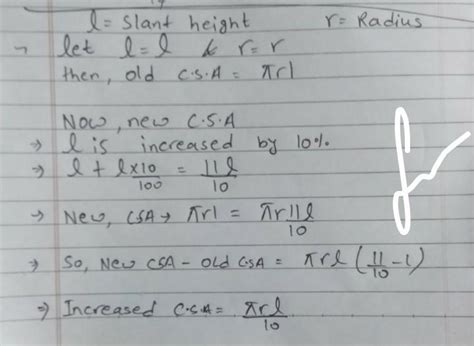 l = Slant height r = Radius
let l = l & r = r
then, old C.S.A = πrl
Now, new C.S.A
→ l is increased by 10%
→ l + l×10/100 = 11l/10
→ New, CSA → πrl = πr11l/10
→ So, New CSA - old CSA = πrl (11/10 - 1)
⇒ Increased C.S.A = πrl/10